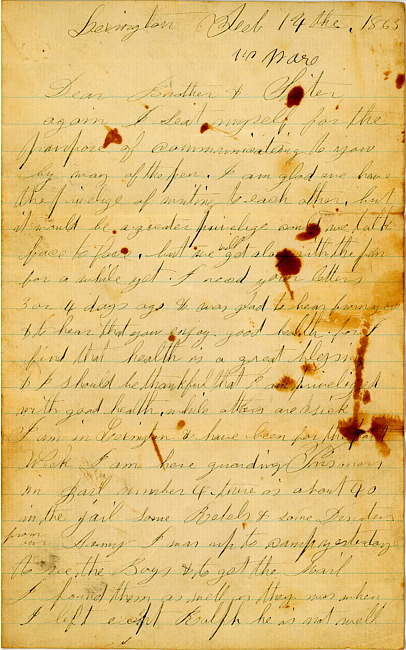 Lexington Feb 14 the, 1863
Dear Brother & Sister
again I Seat myself for the
purpose of communicating to you
by way of the pen. I am glad we have
the privelige of writing to each other, but
it would be a greater privelige could we talk
face to face, but we will do with the pen
for a while yet. I recd your letters
3 or 4 days ago & was glad to hear from you
& to hear that you enjoy good health for I
find that health is a great blessing
& I should be thankful that I am priveliged
with good health, while others are sick
I am in Lexington & have been for the past
Week I am here guarding Prisoners
in Jail number 4, there is about 40
in the jail some Rebels & some Deserters
from our Army I was up to camp yesterday
to see the Boys & to get the Mail
I found them as well as they was when
I left except Ralph he is not well